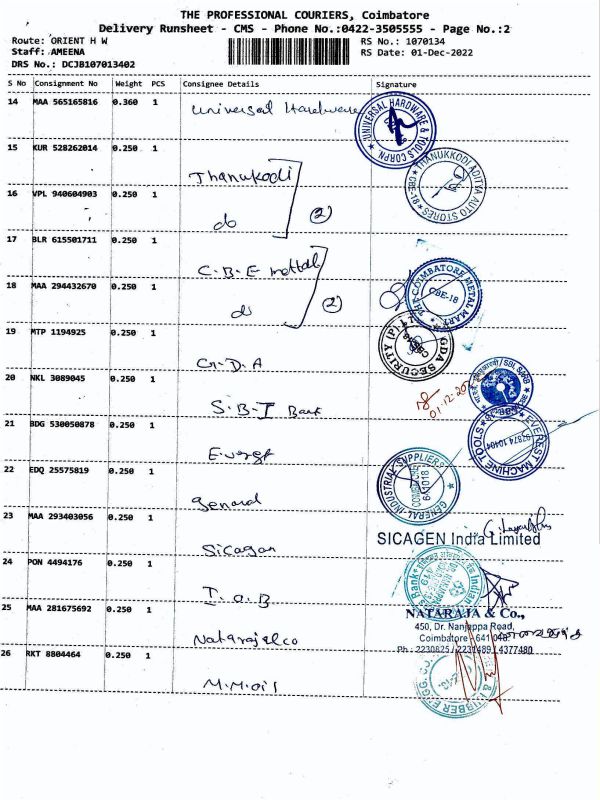 THE PROFESSIONAL COURIERS, Coimbatore
Delivery Runsheet - CMS - Phone No.:0422-3505555 - Page No.:2
Route: ORIENT H W
RS No.: 1070134
Staff: AMEENA
RS Date: 01-Dec-2022
DRS No.: DCJB107013402
S No Consignment No Weight PCS Consignee Details Signature
14 MAA 565165816 0.360 1 Universal Hardware
UNIVERSAL HARDWARE & TOOLS CORPN.
15 KUR 528262014 0.250 1 Thanukodi
THANUKKODI ADITYA AUTO STORES CBE-18
16 VPL 940604903 0.250 1 do (2)
17 BLR 615501711 0.250 1 C.B.E mettal
THE COIMBATORE METAL MART CBE-18
18 MAA 294432670 0.250 1 do (2)
19 MTP 1194925 0.250 1 G.D.A
GDA SECURITY (P)
20 NKL 3089045 0.250 1 S.B.I Bank
SBI
01.12.20
21 BDG 530050878 0.250 1
EVEREST MACHINE TOOLS
22 EDQ 25575819 0.250 1 general
GENERAL INDUSTRIAL SUPPLIERS COIMBATORE 641018
23 MAA 293403056 0.250 1 Sicagan
SICAGEN India Limited
24 PON 4494176 0.250 1 I.O.B
Indian Bank
25 MAA 281675692 0.250 1 Nataraj & co
NATARAJA & Co.,
450, Dr. Nanjappa Road,
Coimbatore - 641 018.
Ph : 2230825 / 2231489 / 4377480
26 RKT 8804464 0.250 1 M.M.oil